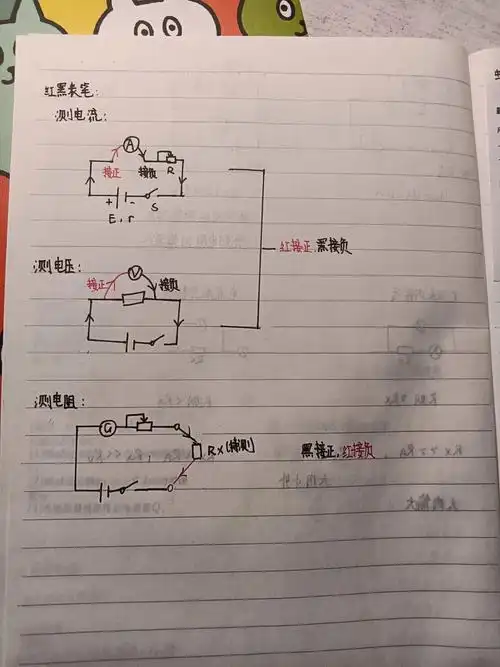 红黑表笔:
测电流:
A
接正 接负 R
+ - S
E,r
红接正,黑接负
测电压:
V
接正 接负
测电阻:
G
Rx(待测)
黑接正,红接负